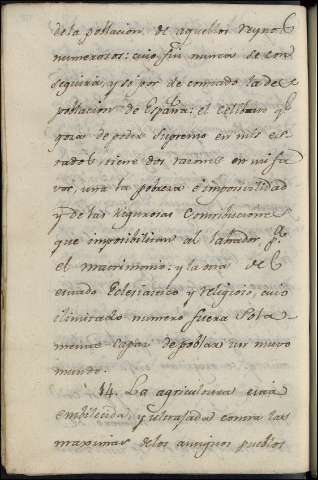 dela poblacion de aquellos reynos
numerosos: cuio fin nunca se con
seguirá, y si por de contado la des
poblacion de España: el celibato q.e
goza de poder supremo en mis es
tados tiene dos razones en mi fa
vor, una la pobreza e imposivilidad
y de las rigurosas Contribuciones
que imposibilitan al labrador p.a
el matrimonio: y la otra del
estado Eclesiastico y religioso, cuio
ilimitado numero fuera Sola
mente capaz de poblar un nuevo
mundo.
14. La agricultura
embilecida, y ultrajada contra las
maximas delos antiguos pueblos